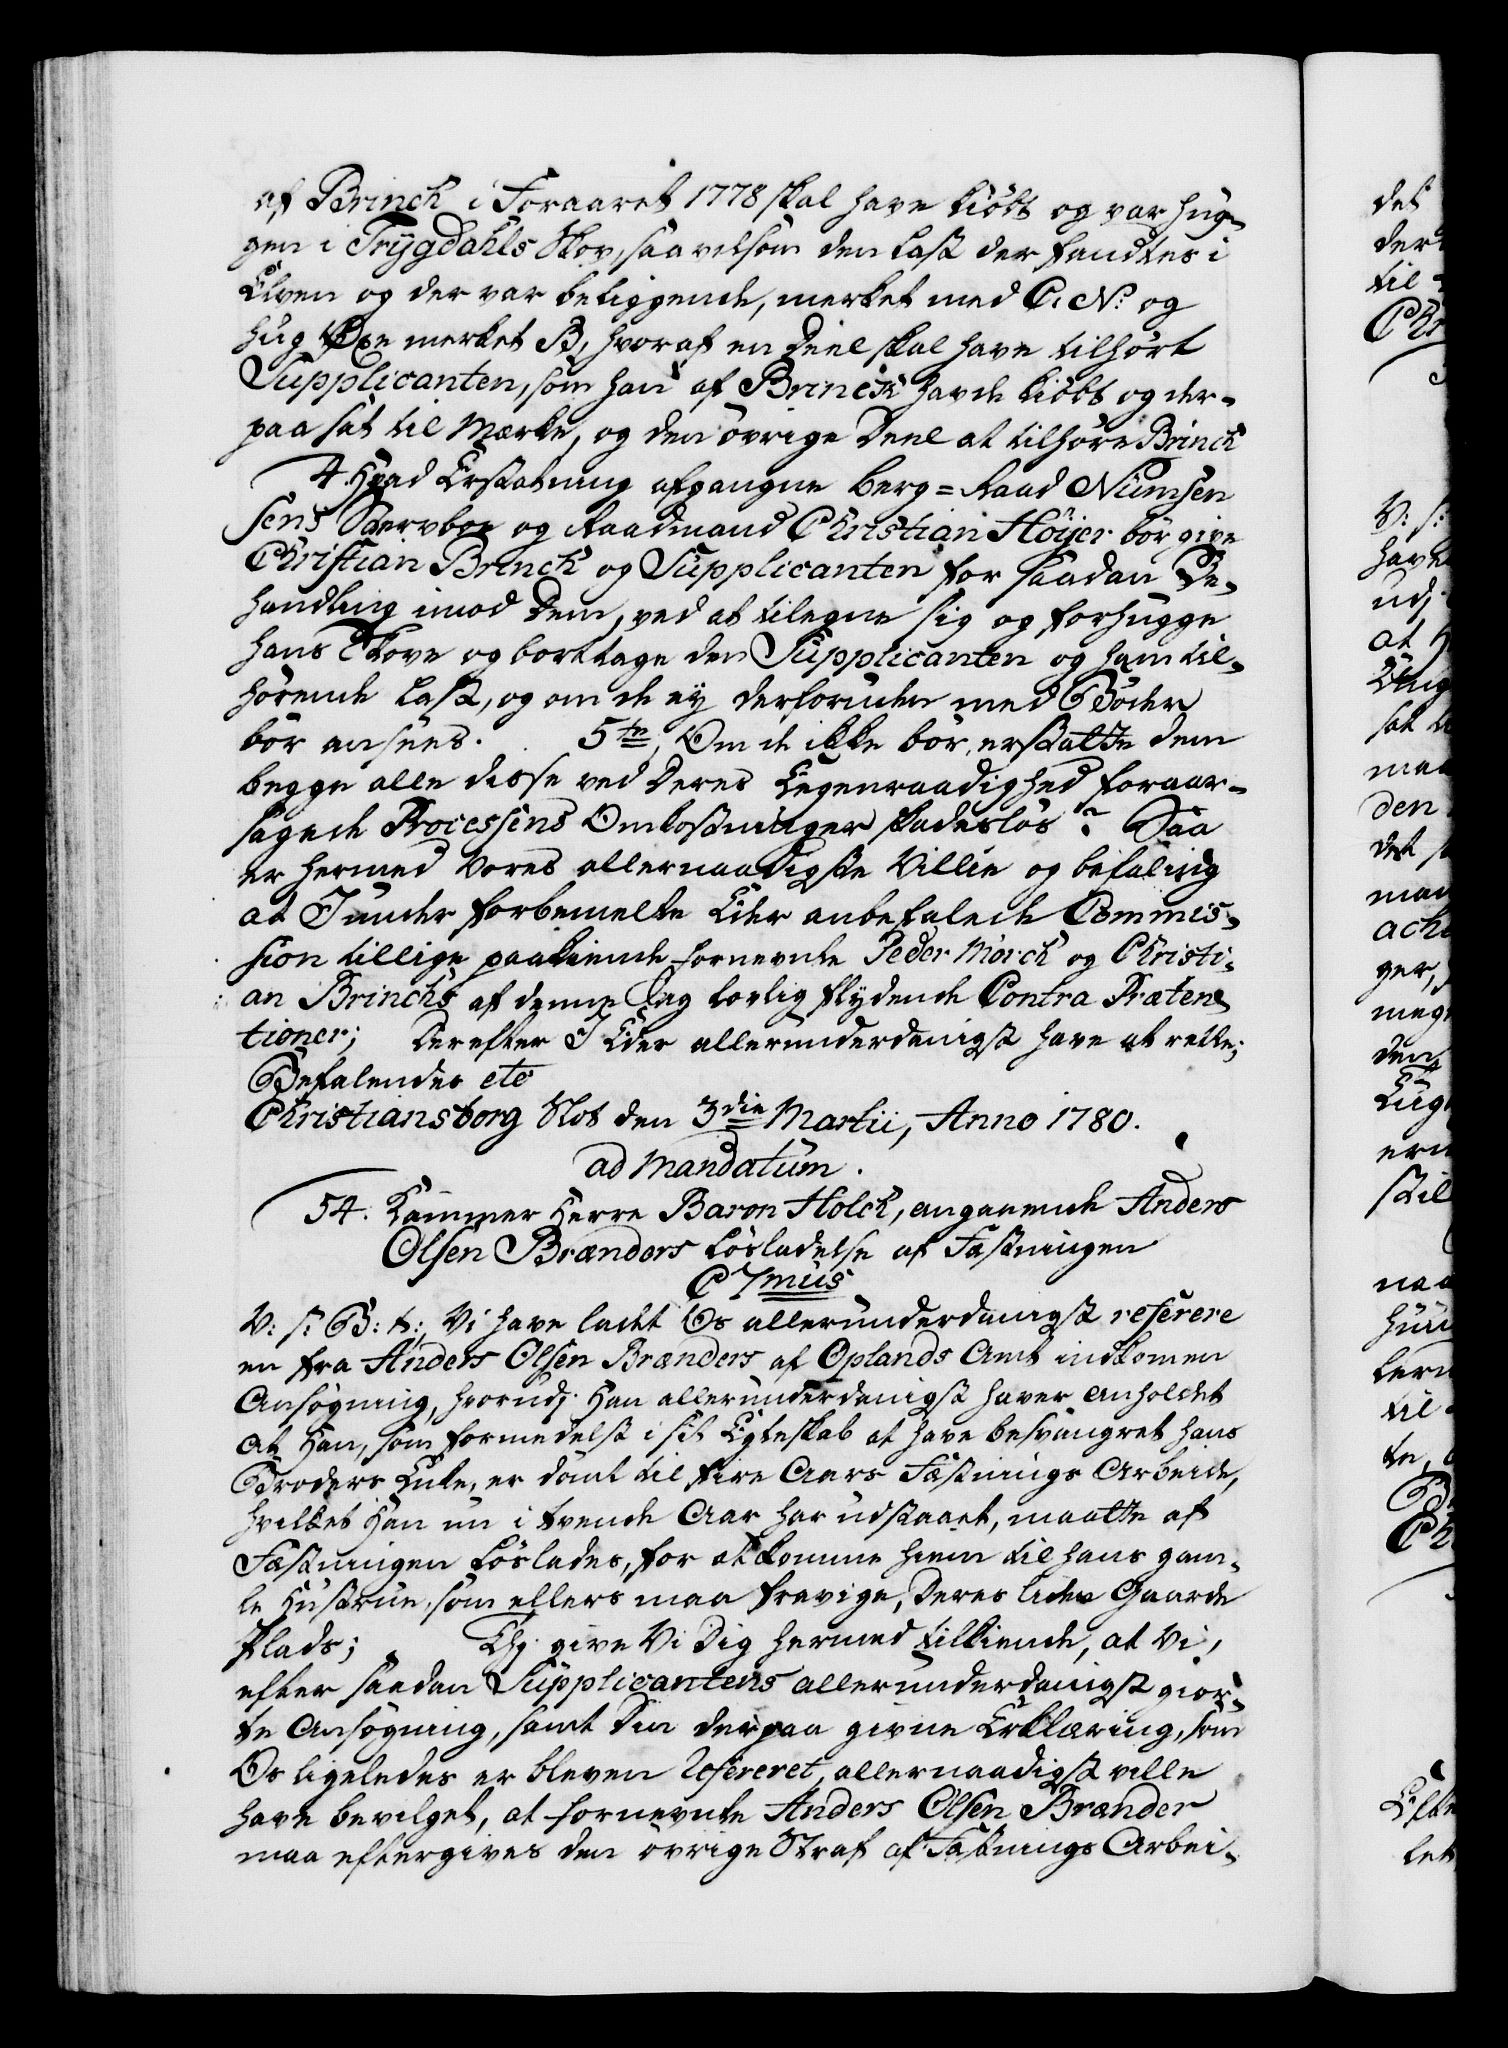 af Brinch i Foraaret 1778 skal have kiöbt og var hug-
gen i Trygdahls Skov, saavelsom den Last der fandtes i
Elven og der var beliggende, merket med C. N: og
hug Öxe merket B, hvoraf en Deel skal have tilhört
Supplicanten, som han af Brinck havde kiöbt og der-
paa sat til Mærke, og den övrige Deel at tilhöre Brinch
4. Hvad Erstatning afgangne Berg-Raad Niimsen
sens Stervboe og Raadmand Christian Höijer bör give
Christian Brinch og Supplicanten for saadan Be-
handling imod Dem, ved at tilegne sig og forhugge
hans Skove og borttage den Supplicanten og ham til-
hörende Last, og om de ey derforuden med Böder
bör ansees. 5te, Om de ikke bör erstatte dem
begge alle disse ved Deres Egenraadighed foraar-
sagede Processens Omkostninger skadeslös? Saa
er hermed Vores allernaadigste Villie og befaling
at I under forbemelte Eder anbefalede Commis-
sion tillige paakiende fornevnte Peder Mörch og Christi-
an Brinchs af denne Sag lovlig flydende Contra Præten-
tioner; Derefter I Eder allerunderdanigst have at rette;
Befalendes etc
Christiansborg Slot den 3die Martii, Anno 1780.
ad mandatum.
54. Kammer Herre Baron Holck, angaaende Anders
Olsen Brænders Lösladelse af Fæstningen
C 7mus
V: s: G: t:, Vi have ladet Os allerunderdanigst referere
en fra Anders Olsen Brænders af Oplands Amt indkomen
Ansögning, hvorudj Han allerunderdanigst haver anholdet
at Han, som formedelst i sit Egteskab at have besvangret hans
Broders Enke, er dömt til fire Aars Fæstnings Arbeide,
hvilket Han nu i tvende Aar har udstaaet, maatte af
Fæstningen Löslades, for at komme hiem til hans gam-
le Hustrue, som ellers maa fravige, Deres liden Gaarde
Plads; Thj give Vi Dig hermed tilkiende, at Vi,
efter saadan Supplicantens allerunderdanigst gior-
te Ansögning, samt Din derpaa givne Erklæring, som
Os ligeledes er bleven Refereret, allernaadigst ville
have bevilget, at fornevnte Anders Olsen Brænder
maa eftergives den övrige Straf af Fæstnings Arbei-